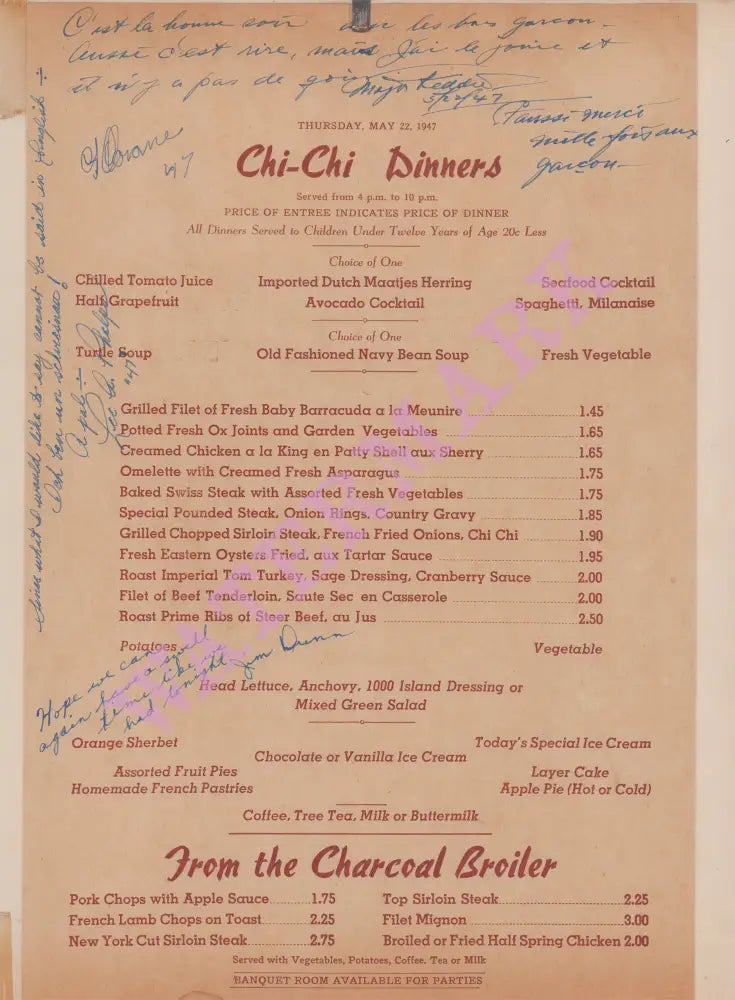 C'est la bonne soir les bas garcon.
Aussi c'est rire, mais J'ai le joie et
et il n'y a pas de
Major Keddie
5/22/47
Paussi merci
mille fois aux
garcon
47
THURSDAY, MAY 22, 1947
Chi-Chi Dinners
Served from 4 p.m. to 10 p.m.
PRICE OF ENTREE INDICATES PRICE OF DINNER
All Dinners Served to Children Under Twelve Years of Age 20c Less
Choice of One
Chilled Tomato Juice Imported Dutch Maatjes Herring Seafood Cocktail
Half Grapefruit Avocado Cocktail Spaghetti, Milanaise
Choice of One
Turtle Soup Old Fashioned Navy Bean Soup Fresh Vegetable
Since what I would like to say cannot be said in English
A pal
'47
Grilled Filet of Fresh Baby Barracuda a la Meunire 1.45
Potted Fresh Ox Joints and Garden Vegetables 1.65
Creamed Chicken a la King en Patty Shell aux Sherry 1.65
Omelette with Creamed Fresh Asparagus 1.75
Baked Swiss Steak with Assorted Fresh Vegetables 1.75
Special Pounded Steak, Onion Rings, Country Gravy 1.85
Grilled Chopped Sirloin Steak, French Fried Onions, Chi Chi 1.90
Fresh Eastern Oysters Fried, aux Tartar Sauce 1.95
Roast Imperial Tom Turkey, Sage Dressing, Cranberry Sauce 2.00
Filet of Beef Tenderloin, Saute Sec en Casserole 2.00
Roast Prime Ribs of Steer Beef, au Jus 2.50
Potatoes Vegetable
Hope we can
again have a swell
time like we
had tonight Jim Dunn
Head Lettuce, Anchovy, 1000 Island Dressing or
Mixed Green Salad
Orange Sherbet Today's Special Ice Cream
Chocolate or Vanilla Ice Cream
Assorted Fruit Pies Layer Cake
Homemade French Pastries Apple Pie (Hot or Cold)
Coffee, Tree Tea, Milk or Buttermilk
From the Charcoal Broiler
Pork Chops with Apple Sauce 1.75 Top Sirloin Steak 2.25
French Lamb Chops on Toast 2.25 Filet Mignon 3.00
New York Cut Sirloin Steak 2.75 Broiled or Fried Half Spring Chicken 2.00
Served with Vegetables, Potatoes, Coffee, Tea or Milk
BANQUET ROOM AVAILABLE FOR PARTIES